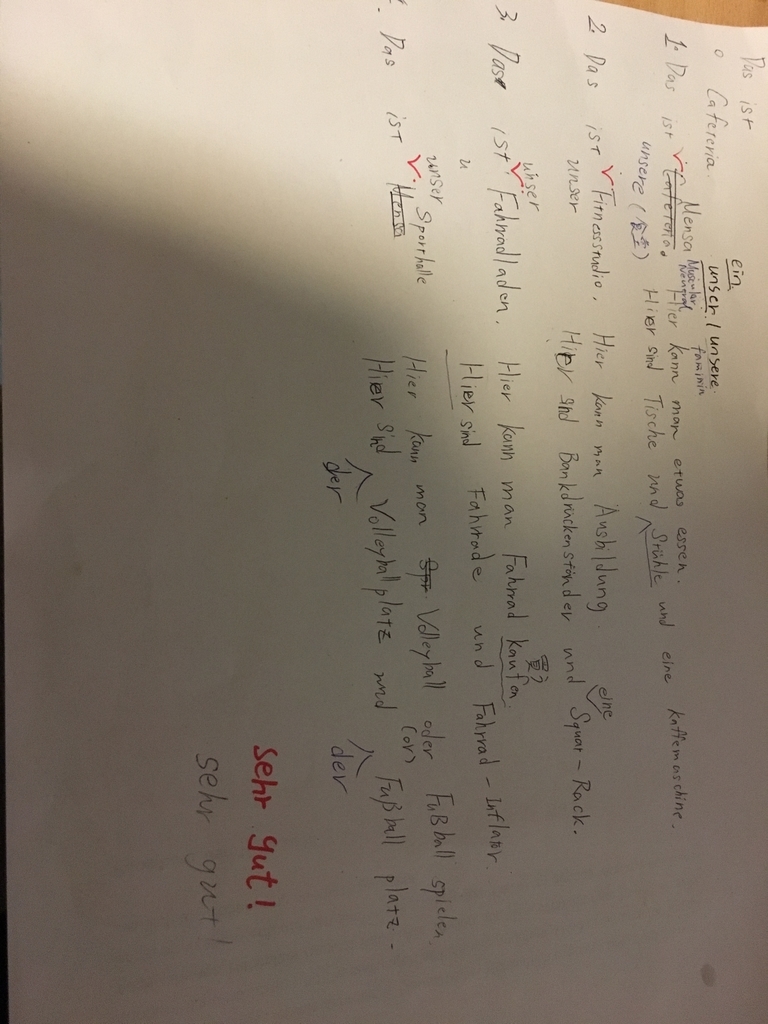 Das ist
ein
o Cafeteria.
unser / unsere
Maskulin feminin
Neutral
1. Das ist Mensa Cafeteria. Hier kann man etwas essen.
unsere (食堂) Hier sind Tische und Stühle und eine kaffemaschine.
2. Das ist Fitnessstudio. Hier kann man Ausbildung.
unser Hier sind Bankdrückenständer und eine Squat-Rack.
unser 買?
3. Das ist Fahrradladen. Hier kann man Fahrrad kaufen.
u Hier sind Fahrrade und Fahrrad-Inflator.
unser Sporthalle Hier kann man Spr Volleyball oder Fußball spielen.
(or)
Das ist Mensa Hier sind Volleyballplatz und Fußball platz-
der der
sehr gut!
sehr gut!